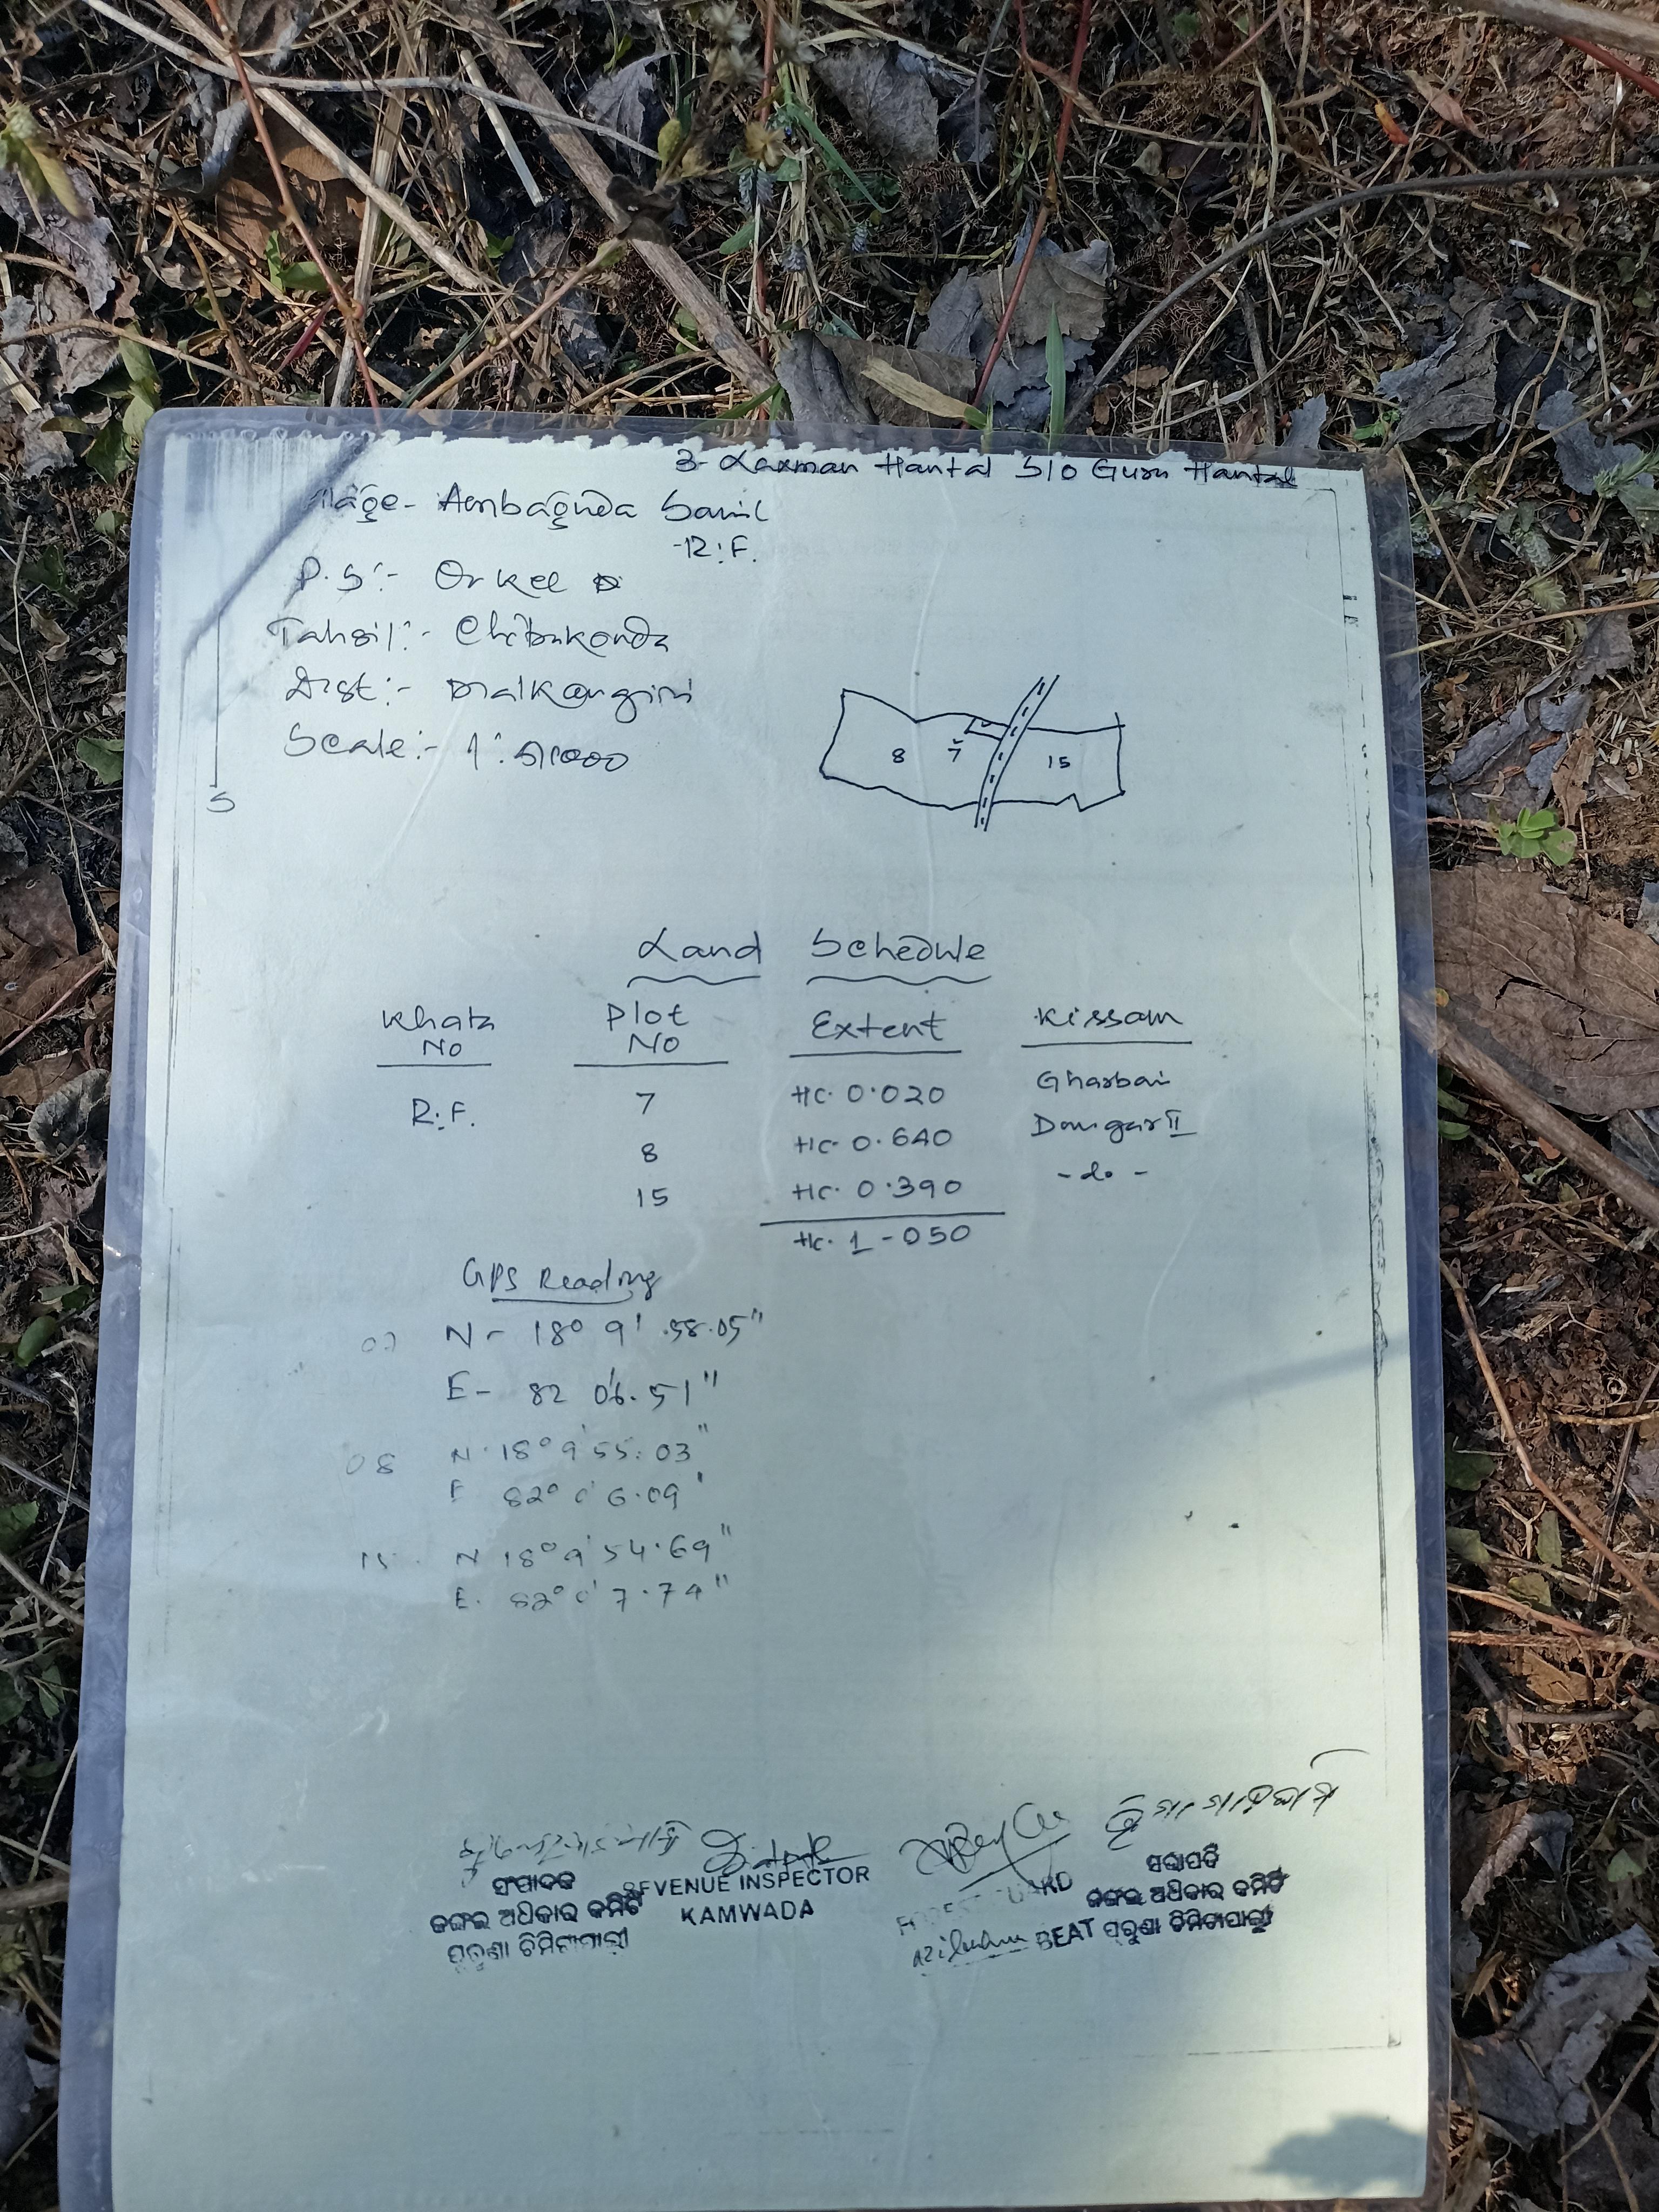 3- Laxman Hantal S/O Guru Hantal
llage- Ambaguda Samil
R.F.
P.S:- Orkel
Tahsil:- Chitrakonda
Dist:- Malkangiri
Scale:-
S
8 7 15
Land Schedule
Khata No Plot No Extent Kissam
R.F. 7 Hc. 0.020 Gharbari
8 Hc. 0.640 Dongar II
15 Hc. 0.390 -do-
Hc. 1-050
GPS Reading
07 N- 18° 9' .58.05"
E- 82 0'6.51"
08 N. 18° 9' 55.03"
E 82° 0' 6.09'
15. N 18° 9' 54.69"
E. 82° 0' 7.74"
ସଂପାଦକ
ଜଙ୍ଗଲ ଅଧିକାର କମିଟି
ପୁରୁଣା ଚିମିଟାପାଲୀ
REVENUE INSPECTOR
KAMWADA
FOREST GUARD
BEAT
ସଭାପତି
ଜଙ୍ଗଲ ଅଧିକାର କମିଟି
ପୁରୁଣା ଚିମିଟାପାଲୀ